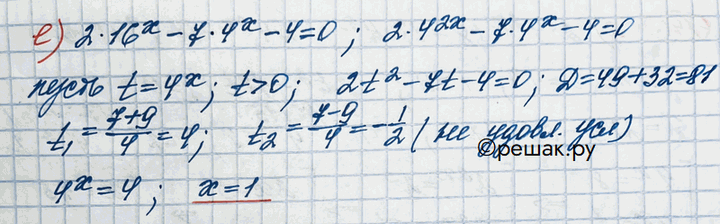 е) 2·16^x − 7·4^x − 4 = 0 ; 2·4^{2x} − 7·4^x − 4 = 0
пусть t = 4^x ; t > 0 ; 2t² − 7t − 4 = 0 ; D = 49 + 32 = 81
t₁ = \frac{7+9}{4} = 4 ; t₂ = \frac{7−9}{4} = −\frac{1}{2} ( не удовл. усл)
©решак.ру
4^x = 4 ; x = 1